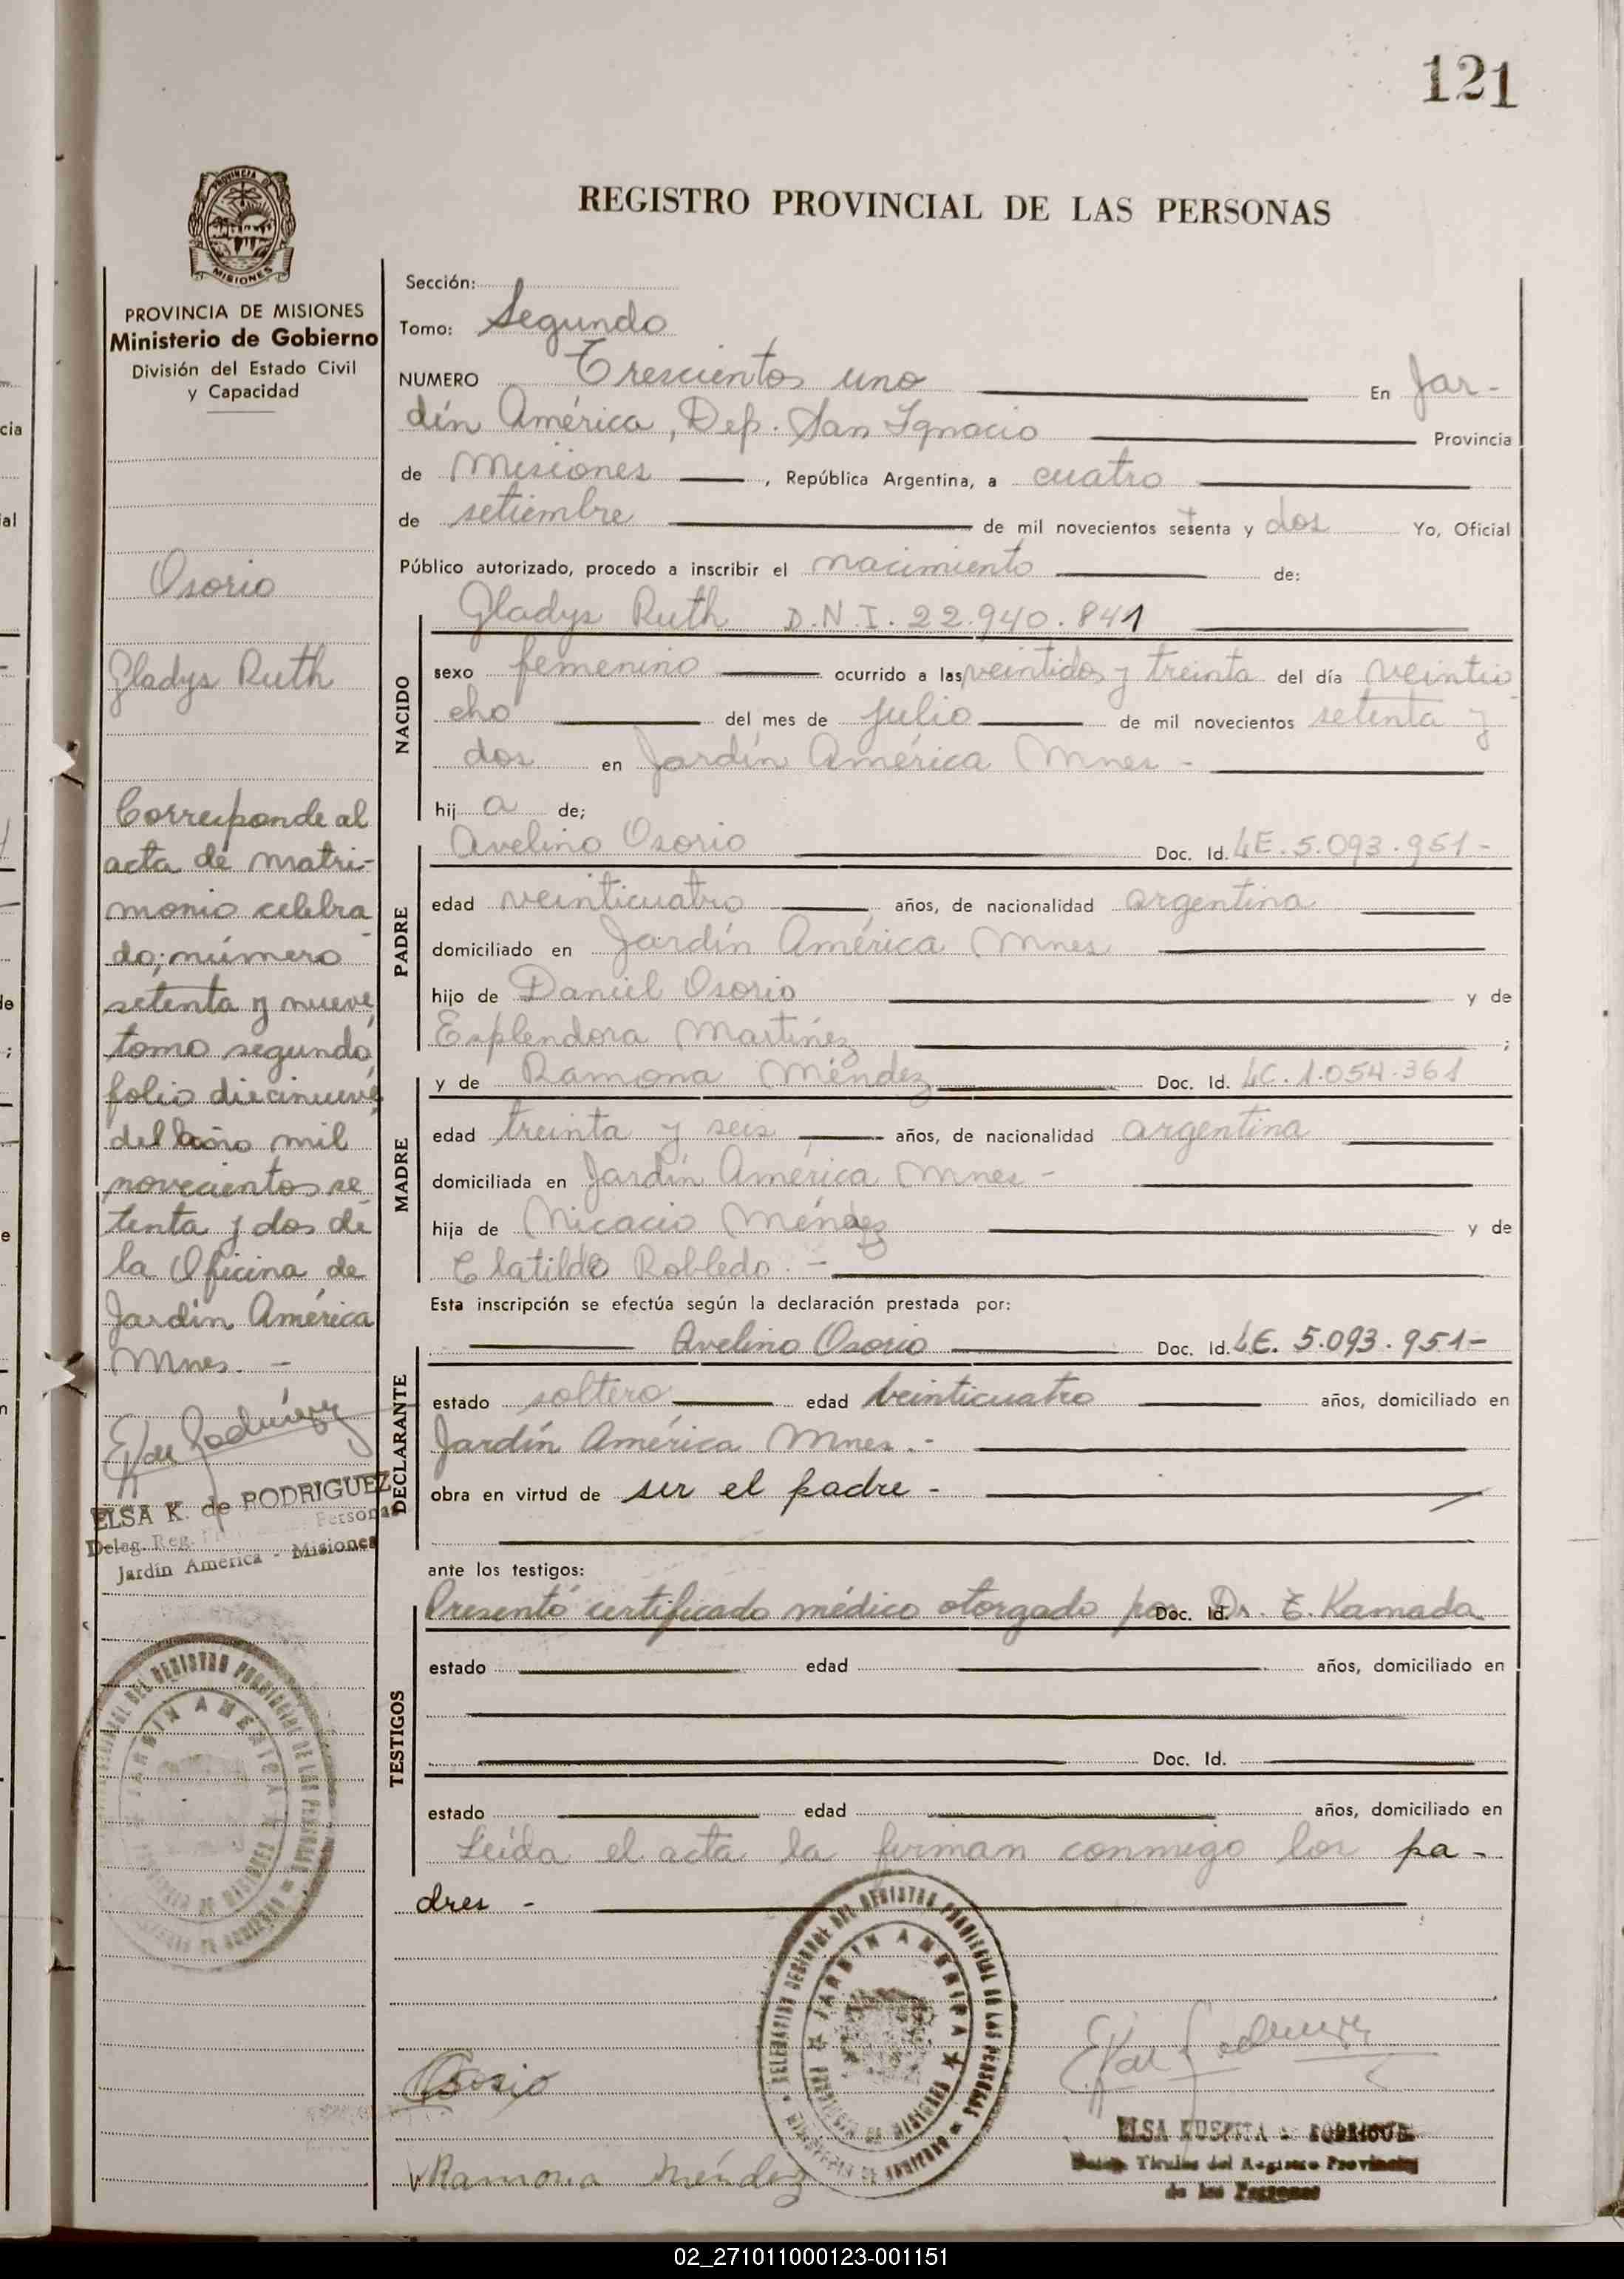 121
REGISTRO PROVINCIAL DE LAS PERSONAS
PROVINCIA DE
MISIONES
PROVINCIA DE MISIONES
Ministerio de Gobierno
División del Estado Civil
y Capacidad
Osorio
Gladys Ruth
Corresponde al
acta de matri-
monio celebra
do; número
setenta y nueve,
tomo segundo,
folio diecinueve
del año mil
novecientos se
tenta y dos de
la Oficina de
Jardín América
Mnes. -
ELSA K. de RODRIGUEZ
Deleg. Reg. Personas
Jardín América - Misiones
Sección:
Tomo: Segundo
NUMERO Trescientos uno En Jar-
dín América, Dep. San Ignacio Provincia
de Misiones , República Argentina, a cuatro
de setiembre de mil novecientos setenta y dos Yo, Oficial
Público autorizado, procedo a inscribir el nacimiento de:
Gladys Ruth D.N.I. 22.940.841
NACIDO
sexo femenino ocurrido a las veintidos y treinta del día veintio
cho del mes de julio de mil novecientos setenta y
dos en Jardín América Mnes -
hij a de;
Avelino Osorio Doc. Id. LE. 5.093.951-
PADRE
edad veinticuatro años, de nacionalidad argentina
domiciliado en Jardín América Mnes
hijo de Daniel Osorio y de
Esplendora Martínez ;
y de Ramona Méndez Doc. Id. LC. 1.054.361
MADRE
edad treinta y seis años, de nacionalidad argentina
domiciliada en Jardín América Mnes -
hija de Nicacio Méndez y de
Clatilde Robledo. -
Esta inscripción se efectúa según la declaración prestada por:
Avelino Osorio Doc. Id. LE. 5.093.951-
DECLARANTE
estado soltero edad veinticuatro años, domiciliado en
Jardín América Mnes. -
obra en virtud de ser el padre -
ante los testigos:
Presentó certificado médico otorgado por Doc. Id. Dr. E. Kamada
TESTIGOS
estado edad años, domiciliado en
Doc. Id.
estado edad años, domiciliado en
Leída el acta la firman conmigo los pa-
dres -
DELEGACION REGIONAL DEL REGISTRO PROVINCIAL DE LAS PERSONAS
JARDIN AMERICA
PROVINCIA DE MISIONES
Osorio
Ramona Méndez
Titular del Registro Provincial
de las Personas
02_271011000123-001151